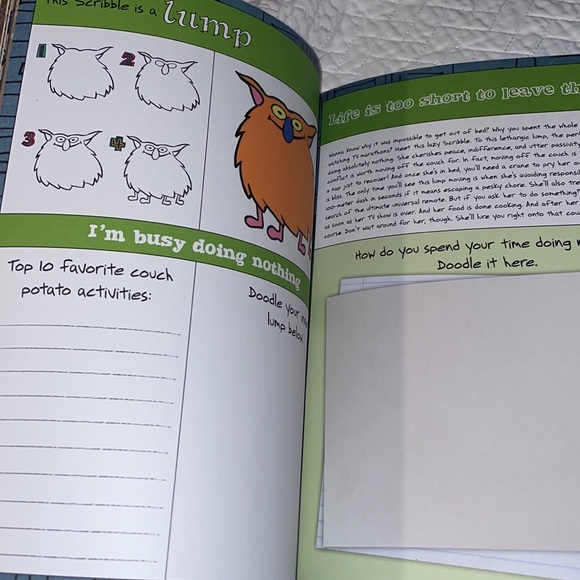 This Scribble is a lump
1
2
3
4
I'm busy doing nothing
Top 10 favorite couch
potato activities:
Doodle your
lump below.
Life is too short to leave th
Wanna know why it was impossible to get out of bed? Why you spent the whole
watching TV marathons? Meet this lazy Scribble. To this lethargic lump, the per
doing absolutely nothing. She cherishes peace, indifference, and utter passivity
conflict is worth moving off the couch for. In fact, moving off the couch is
a nap just to recover! And once she's in bed, you'll need a crane to pry her
is bliss. The only time you'll see this lump moving is when she's avoiding responsi
100-meter dash in seconds if it means escaping a pesky chore. She'll also tre
search of the ultimate universal remote. But if you ask her to do something?
as soon as her TV show is over. And her food is done cooking. And after her
course. Don't wait around for her, though. She'll lure you right onto that cou
How do you spend your time doing n
Doodle it here.